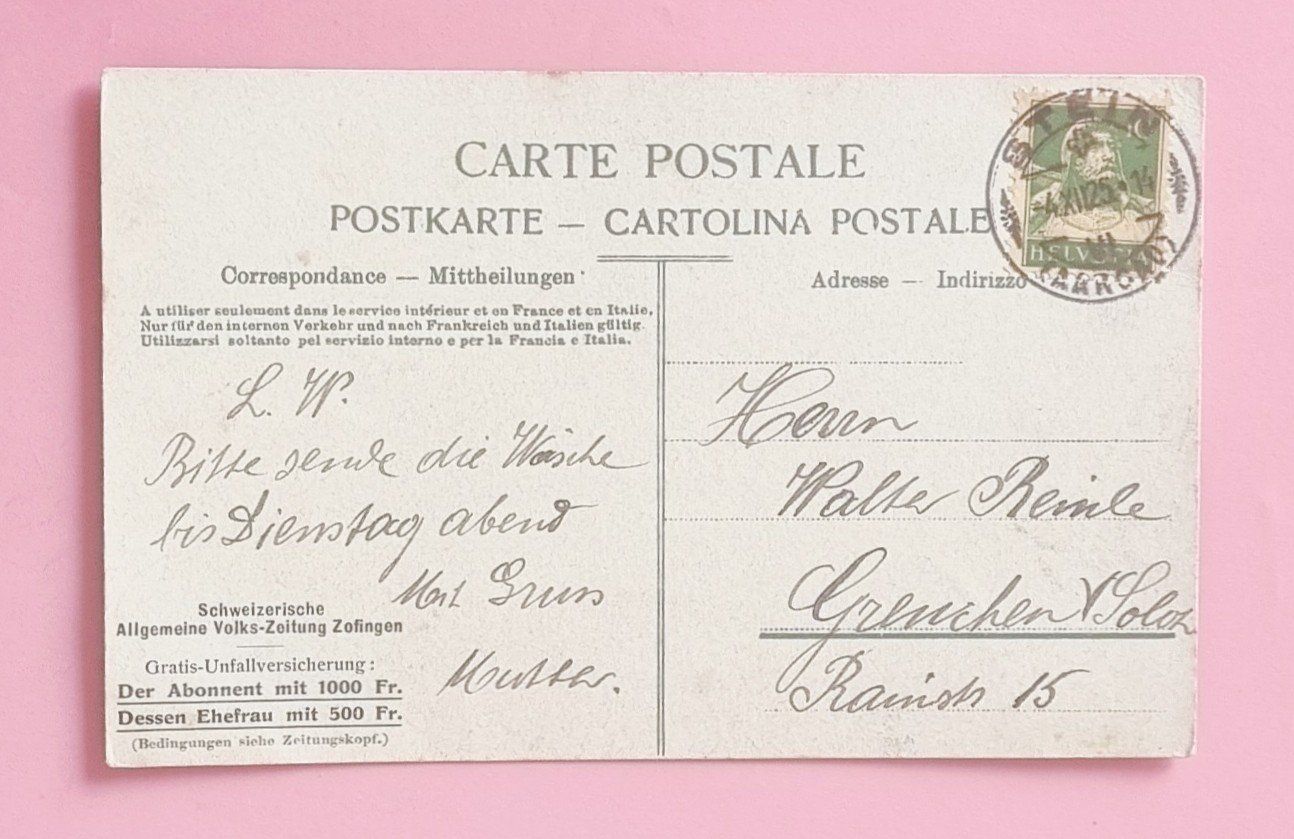 CARTE POSTALE
POSTKARTE — CARTOLINA POSTALE
Correspondance — Mittheilungen
A utiliser seulement dans le service intérieur et en France et en Italie.
Nur für den internen Verkehr und nach Frankreich und Italien gültig.
Utilizzarsi soltanto pel servizio interno e per la Francia e Italia.
L. W.
Bitte sende die Wäsche
bis Dienstag abend
Mit Gruss
Mutter.
Schweizerische
Allgemeine Volks-Zeitung Zofingen
Gratis-Unfallversicherung:
Der Abonnent mit 1000 Fr.
Dessen Ehefrau mit 500 Fr.
(Bedingungen siehe Zeitungskopf.)
Adresse — Indirizzo
STEIN
(AARGAU)
Herrn
Walter Reimle
Grenchen (Soloth
Rainstr 15